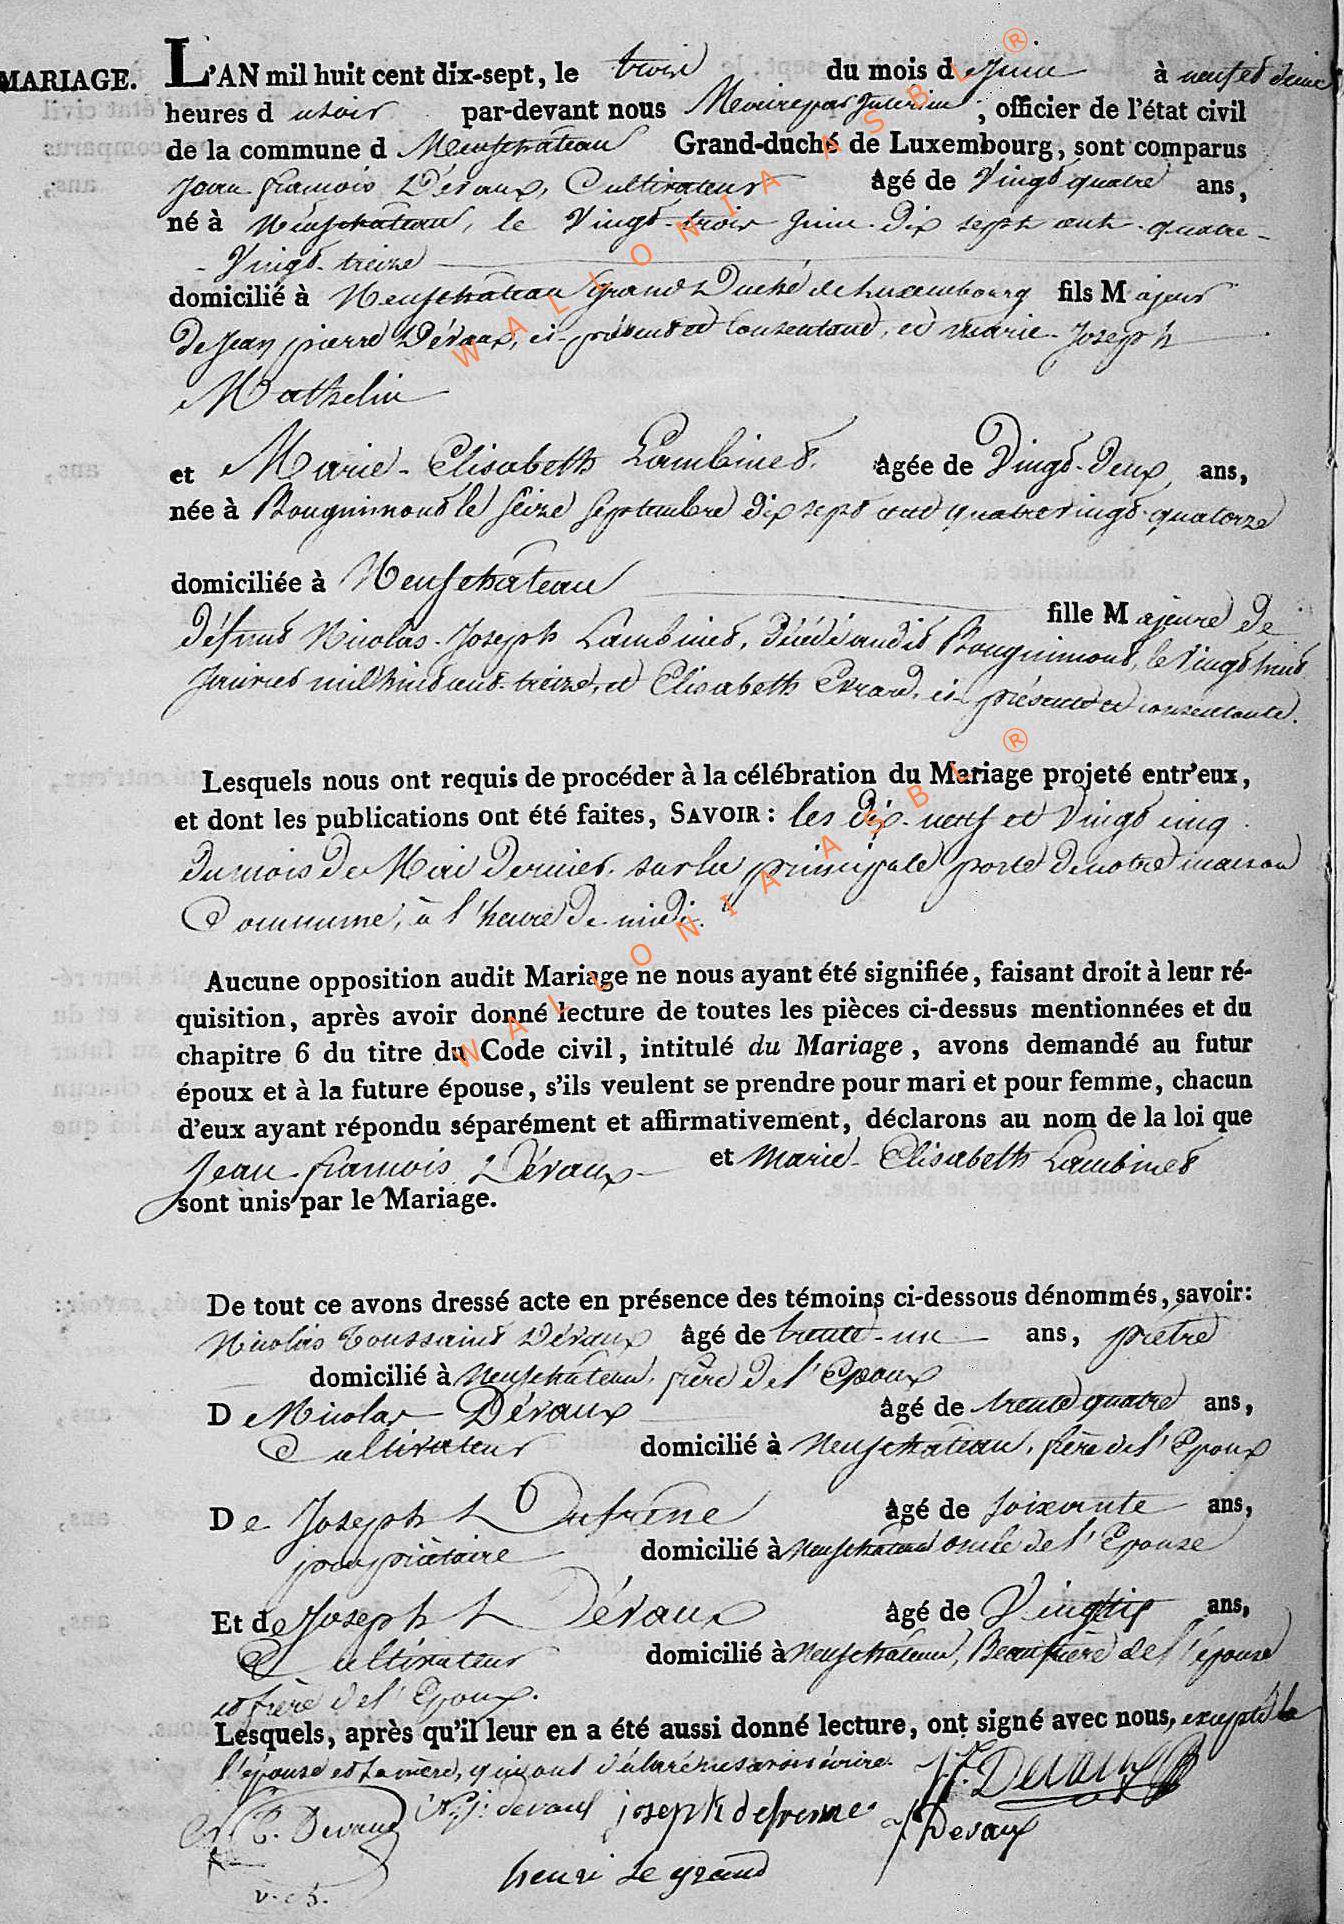 MARIAGE. L'AN mil huit cent dix-sept, le trois du mois d e Juin à neuf et demie
heures d u soir par-devant nous Maire par Interim, officier de l'état civil
de la commune d e Neufchateau Grand-duché de Luxembourg, sont comparus
Jean françois Dévaux, Cultivateur âgé de Vingt quatre ans,
né à Neufchateau, le Vingt-trois Juin dix sept cent quatre-
- Vingt-treize
domicilié à Neufchateau Grand Duché de Luxembourg fils M ajeur
de Jean pierre Dévaux, ci-présent et Consentant, et Marie-Joseph
Mathelin
et Marie-Elisabeth Lambinet. âgée de Vingt-Deux ans,
née à Rouguimont le Seize Septembre dix sept cent quatre vingt-quatorze
domiciliée à Neufchateau
fille M ajeure de
défunt Nicolas-Joseph Lambinet, décédé audit Rouguimont, le Vingt huit
Janvier mil huit cent-treize, et Elisabeth Evrard, ci-présente et consentante.
Lesquels nous ont requis de procéder à la célébration du Mariage projeté entr'eux,
et dont les publications ont été faites, SAVOIR : les dix-neuf et Vingt cinq
du mois de Mai dernier, sur la principale porte de notre maison
Commune, à l'heure de midi.
Aucune opposition audit Mariage ne nous ayant été signifiée, faisant droit à leur ré-
quisition, après avoir donné lecture de toutes les pièces ci-dessus mentionnées et du
chapitre 6 du titre du Code civil, intitulé du Mariage, avons demandé au futur
époux et à la future épouse, s'ils veulent se prendre pour mari et pour femme, chacun
d'eux ayant répondu séparément et affirmativement, déclarons au nom de la loi que
Jean-françois Dévaux et Marie-Elisabeth Lambinet
sont unis par le Mariage.
De tout ce avons dressé acte en présence des témoins ci-dessous dénommés, savoir:
Nicolas Toussaint Dévaux âgé de trente-un ans, prêtre
domicilié à Neufchâteau, frère de l'Epoux
D e Nicolas Dévaux âgé de trente quatre ans,
Cultivateur domicilié à Neufchateau, frère de l'Epoux
D e Joseph Dufrene âgé de Soixante ans,
propriètaire domicilié à Neufchateau oncle de l'Epouse
Et de Joseph Dévaux âgé de Vingt six ans,
Cultivateur domicilié à Neufchateau, Beaufrère de l'épouse
et frère de l'Epoux.
Lesquels, après qu'il leur en a été aussi donné lecture, ont signé avec nous, excepté la
l'épouse et sa mère, qui ont déclaré ne savoir écrire. J f. Devaux
P. Devaux N. J. devaux joseph defrenne J Devaux
henri le grand
WALLONIA ASBL ®
WALLONIA ASBL ®